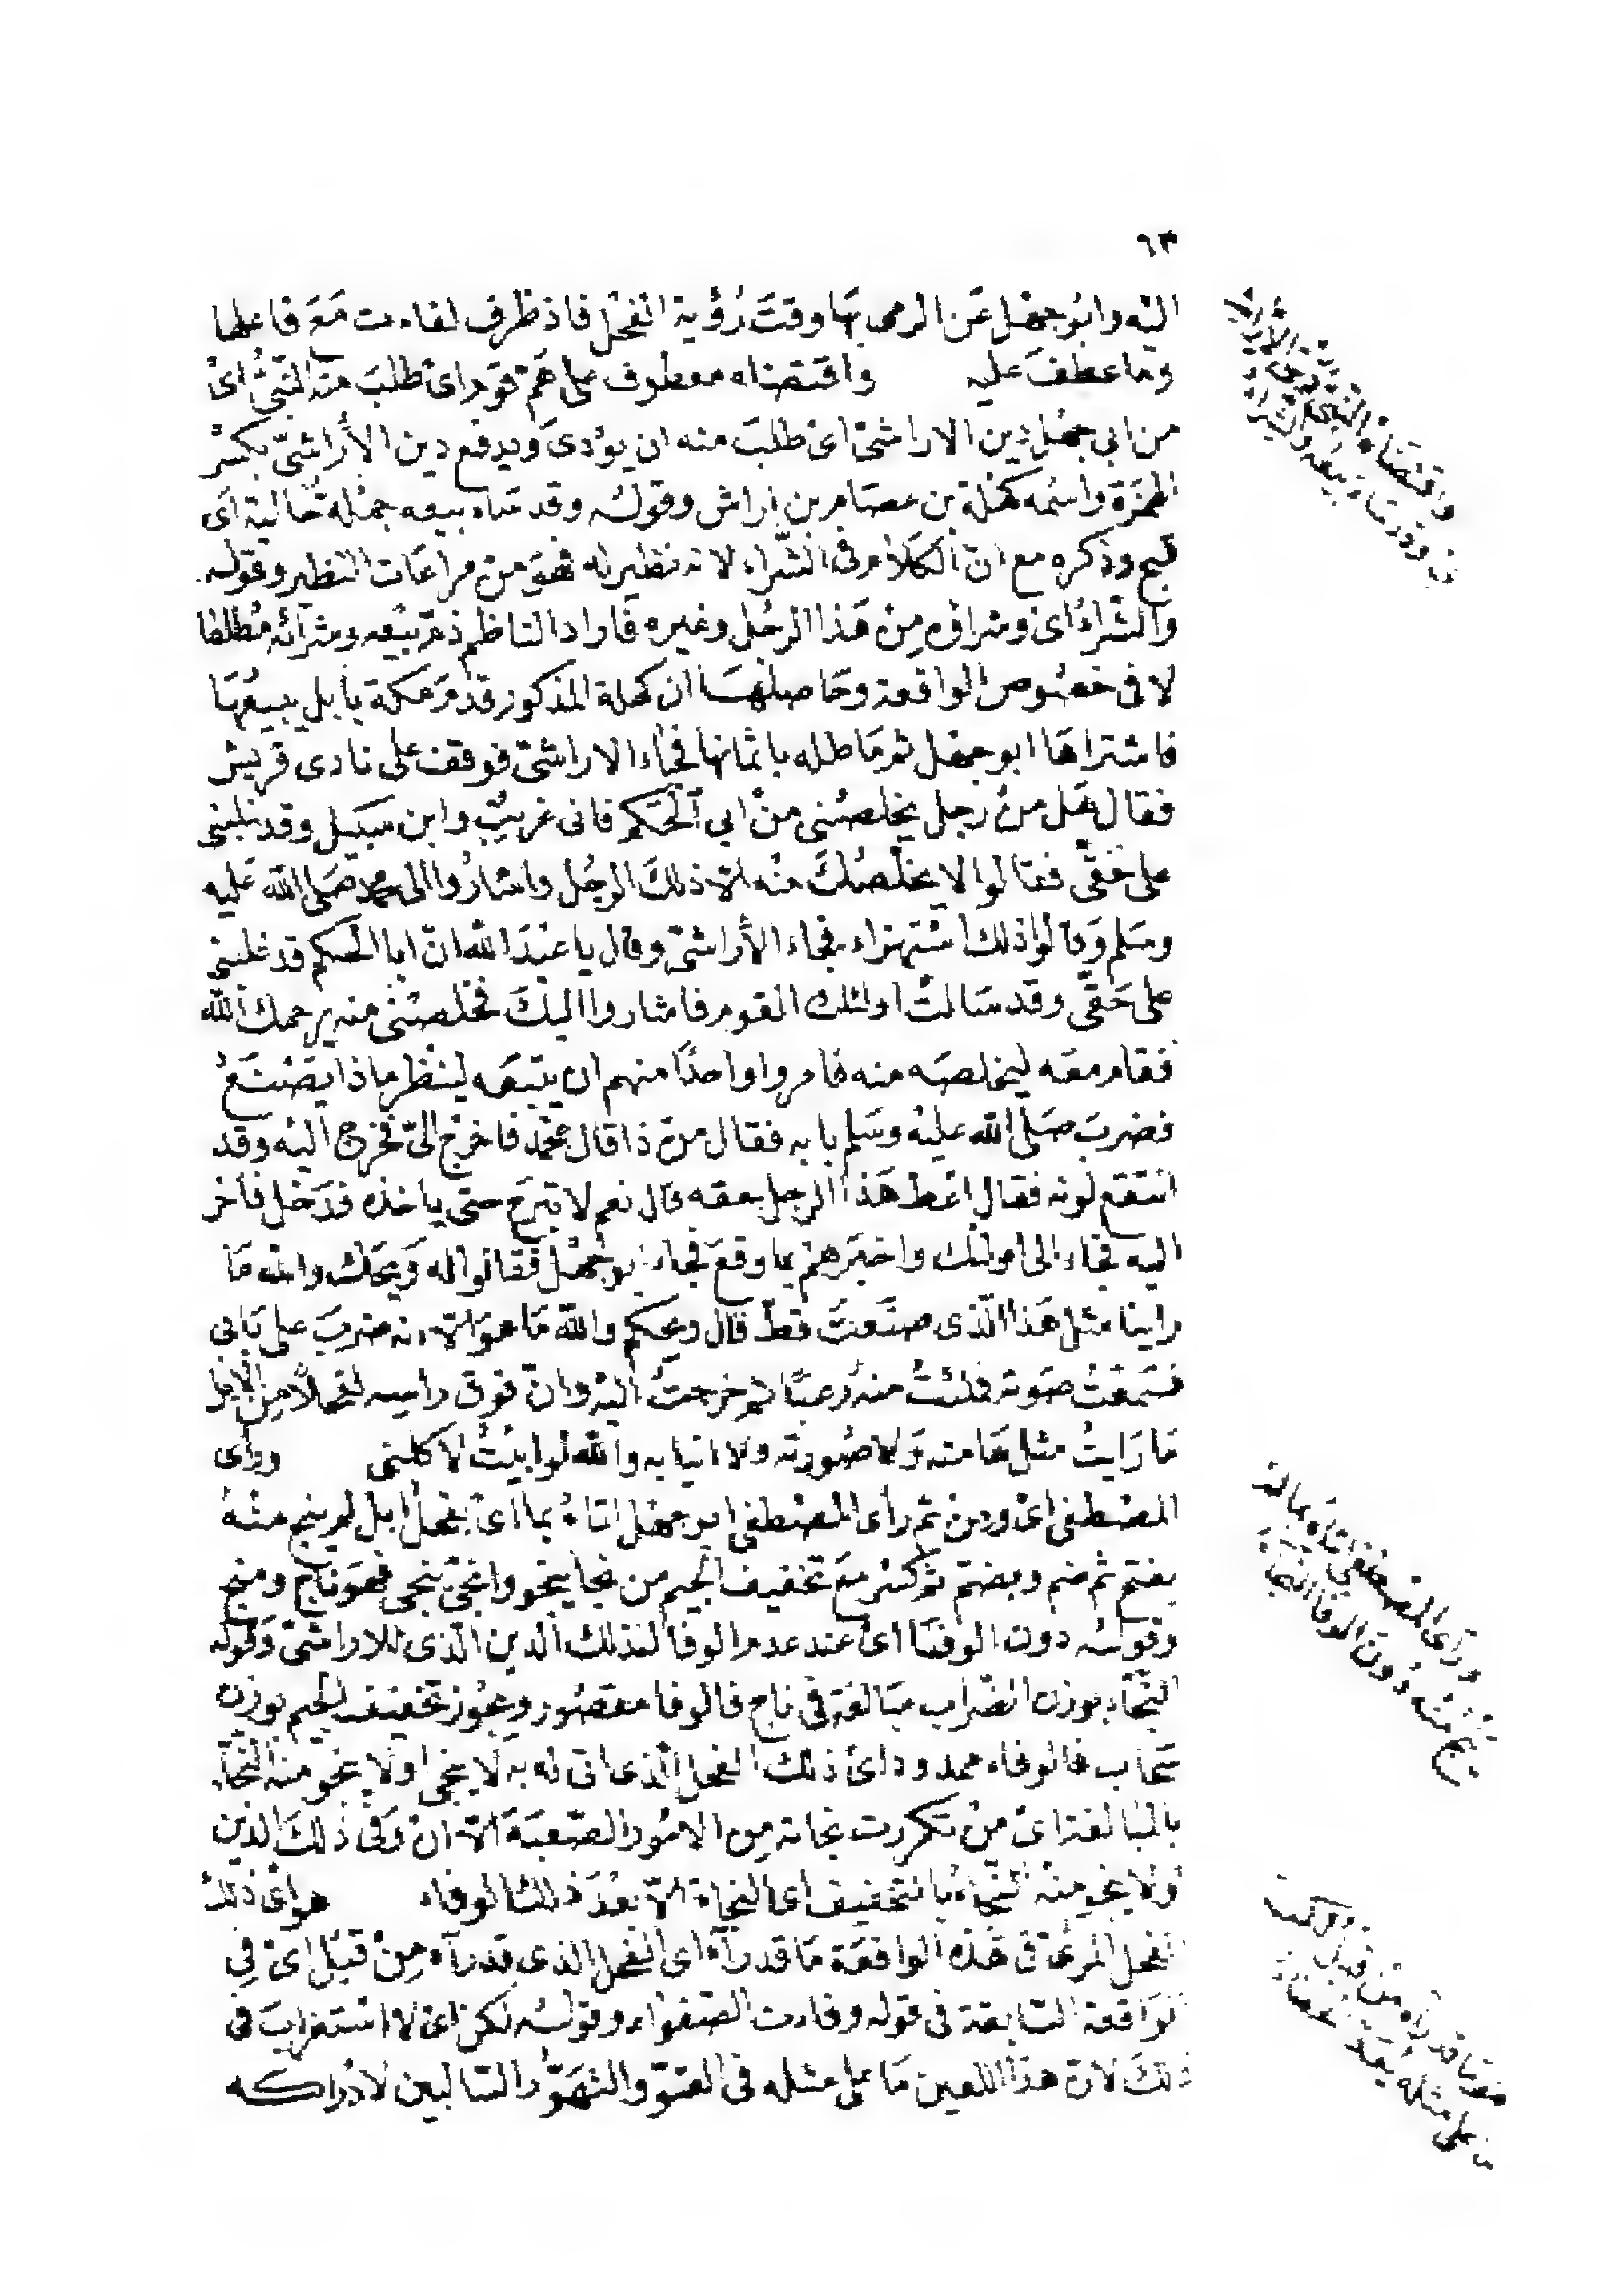 ٦٣
اليْه وابُو جهْل عَن الرمى بهَا وقتَ رُؤية الفحْل فاذ ظرف لفاءت مَعَ فاعلها
وما عطفَ عليه واقتضاه معطوف على هَمّ قوم اىْ طلبَ منه النبىُّ اىْ
من ابى جهْل دين الاراشىّ اىْ طلبَ منه ان يؤدىَ ويدفع دين الأراشىّ بكسْر
الهمْزة واسْمه كهْلة بن عصَام بن اراش وقولـه وقد سَاء بيعه جمْلة حَالية اَى
قبح وذكره مع انّ الكلام فى الشّراء لانه نظير له فهوَ من مراعَات النظير وقوله
والشّراءُ اى وشراؤه مِنْ هَذا الرجُل وغيره فاراد الناظم ذمّ بيْعه وشرائه مُطلقا
لا فى خصُوص الواقعة وحَاصلهَا ان كهلة المذكور قدمَ مكة بابل يبيعُهَا
فاشتراهَا ابو جهْل ثم مَاطله باثمانها فجَاء الاراشىّ فوقف على نادى قريش
فقال هَل منْ رجل يخلصُنى منْ ابى الحَكم فانى غريبٌ وابن سَبيل وقد غلبنى
على حَقّى فقالوا لا يخلّصُكَ منْه الّا ذلكَ الرجُل واشارُوا الى محمد صَلى الله عَليه
وسَلم وَقالوا ذلك اسْتهزاء فجاء الأراشىّ وقال يا عبْدَ الله انّ ابا الحَكم قد غلبنى
على حَقّى وقد سَالتُ اولئك القوم فاشاروا اليْكَ فخلصْنى منه يرحمك الله
فقام معَه ليخلصَه منه فامروا واحدًا منهم ان يتبعَه لينْظر ماذا يَصْنعُ
فضربَ صَلى الله عليْه وسَلم بابه فقال منْ ذا قال محمّد فاخرُج الىّ فخرج اليْه وقد
انتقع لونه فقال اعْط هَذا الرجل حقه قال نعم لا تبرَح حتى ياخذه فدَخل فاخرج
اليه فجاء الى اولئك واخبَرهمْ بما وقعَ فجاء ابو جهْل فقالوا له وَيحَك والله مَا
راينا مثل هَذا الّذى صنَعتَ قطّ قال ويحكم والله مَا هوَ الّا انه ضربَ على بَابى
فسَمعْتُ صَوته فملئتُ منْه رعبًا ثم خرجتُ اليْه وانّ فوق راسه لفحلًا مِن الابل
مَا رَايتُ مثل هَامته وَلا صُورته ولا انيابه والله لوابيْتُ لاكلنى وراى
المصْطفى اىْ ومنْ ثم راى المصْطفى ابو جهْل اتاهُ بما اىْ بفحل ابل لم ينج منْهُ
بفتح ثم ضم وبضم ثم كسْر معَ تخفيف الجيم من نجا ينجو وانجى ينجى فهوَ ناج ومنج
وقولـه دون الوفَا اىْ عند عدم الوفا لذلك الدين الّذى للاراشىّ وَقوله
النجّاء بوزن الضراب مبَالغة فى ناج فالوفا مقصُور ويجُوز تخفيف الجيم بوزن
سَحاب فالوفاء ممدود اىْ ذلك الفحل الّذى اتى له به لَا ينجى اولَا ينجو منْه النجّاء
بالمبالغة اىْ منْ تكررت نجاته مِن الامُور الصّعبَة الّا انْ وَفى ذلكَ الدين
اوْلا ينجو منْه النّجاءُ بالتخفيف اى النجاة الّا بعْدَ ذلك الوفاء هو اىْ ذلك
الفحل المرئىّ فى هَذه الواقعَة مَا قد رآهُ اى الفحل الذى قد رآه مِنْ قبْل اىْ فِى
الوَاقعة السّابقة فى قوله وفاءت الصّفواء وقولـه لكن اىْ لا اسْتغرابَ فى
ذلكَ لانّ هذا اللعين مَا على مثله فى العتوّ والتهوّر السّالبين لادْراكه
واقتضَاهُ النبىّ دين الأراشىّ
وقد سَاء بيعُه والشراءُ
ورَاى المصْطفى اتاه بما لم
ينجُ منْه دُون الوفا النجّاء
هو مَا قد رآه منْ قبل لكن
مَا على مثله يُعَدّ الخطاءُ